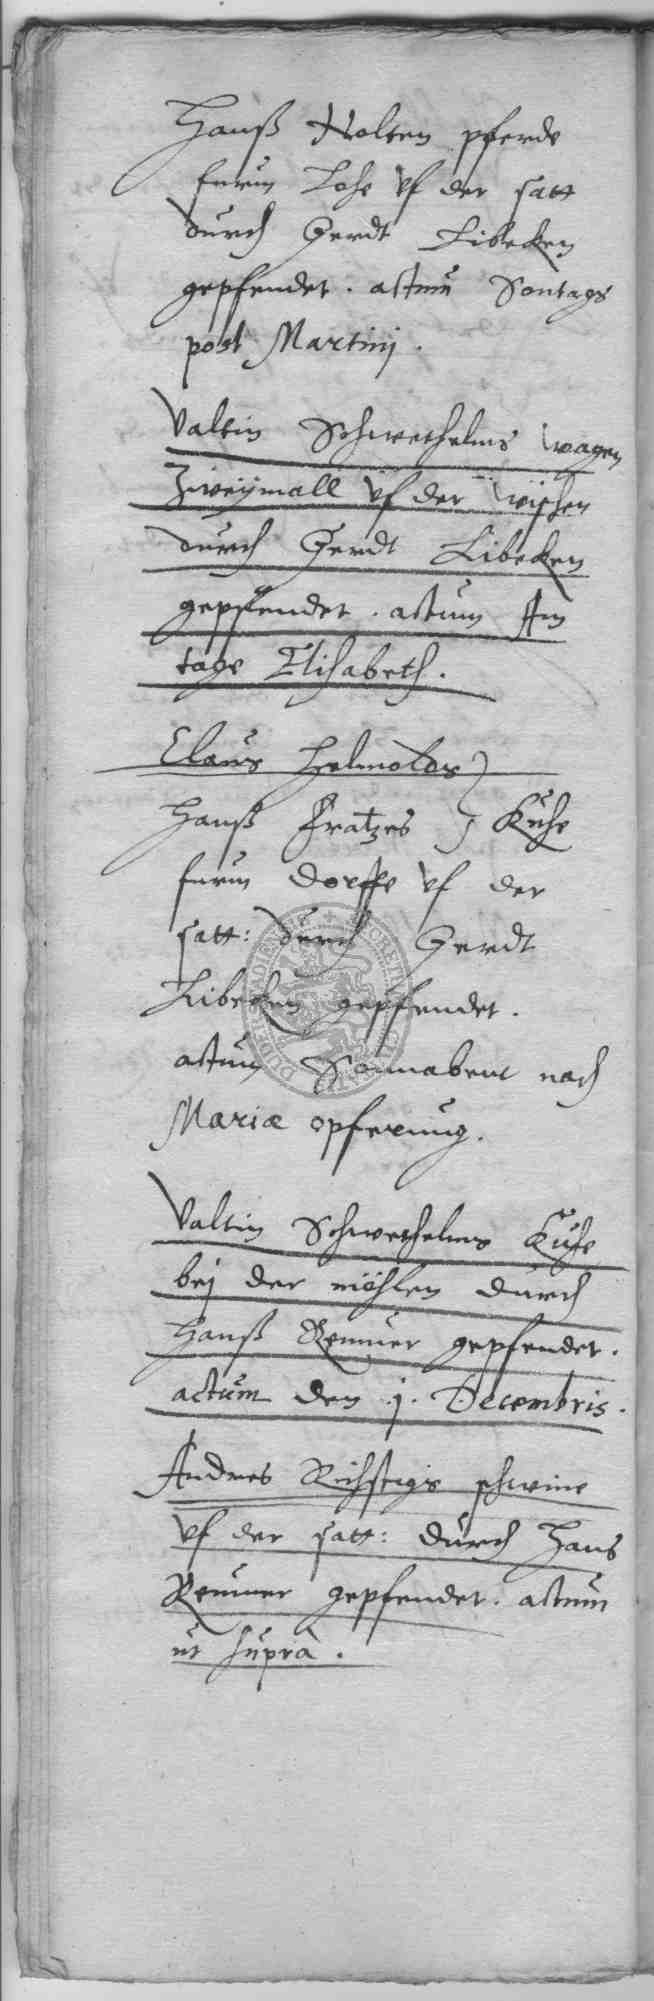 Hanß Nolten pferde
furm Lohe vf der satt
durch Gerdt Libeken
gepfendet. actum Sontags
post Martinj.
Valtin Schwethelms wagen
Zweymall vf der wischen
durch Gerdt Libeken
gepfendet. actum Am
tage Elisabeth.
Claus Helmoldes
Hanß Fratzes Kuhe
furm dorffe vf der
satt: durch Gerdt
Libeken gepfendet.
actum Sonnabent nach
Mariæ opferung.
Valtin Schwethelms Kuhe
bej der möhlen durch
Hanß Renner gepfendet.
actum den j. Decembris.
Andres schweine
vf der satt: durch Hans
Renner gepfendet. actum
ut supra.